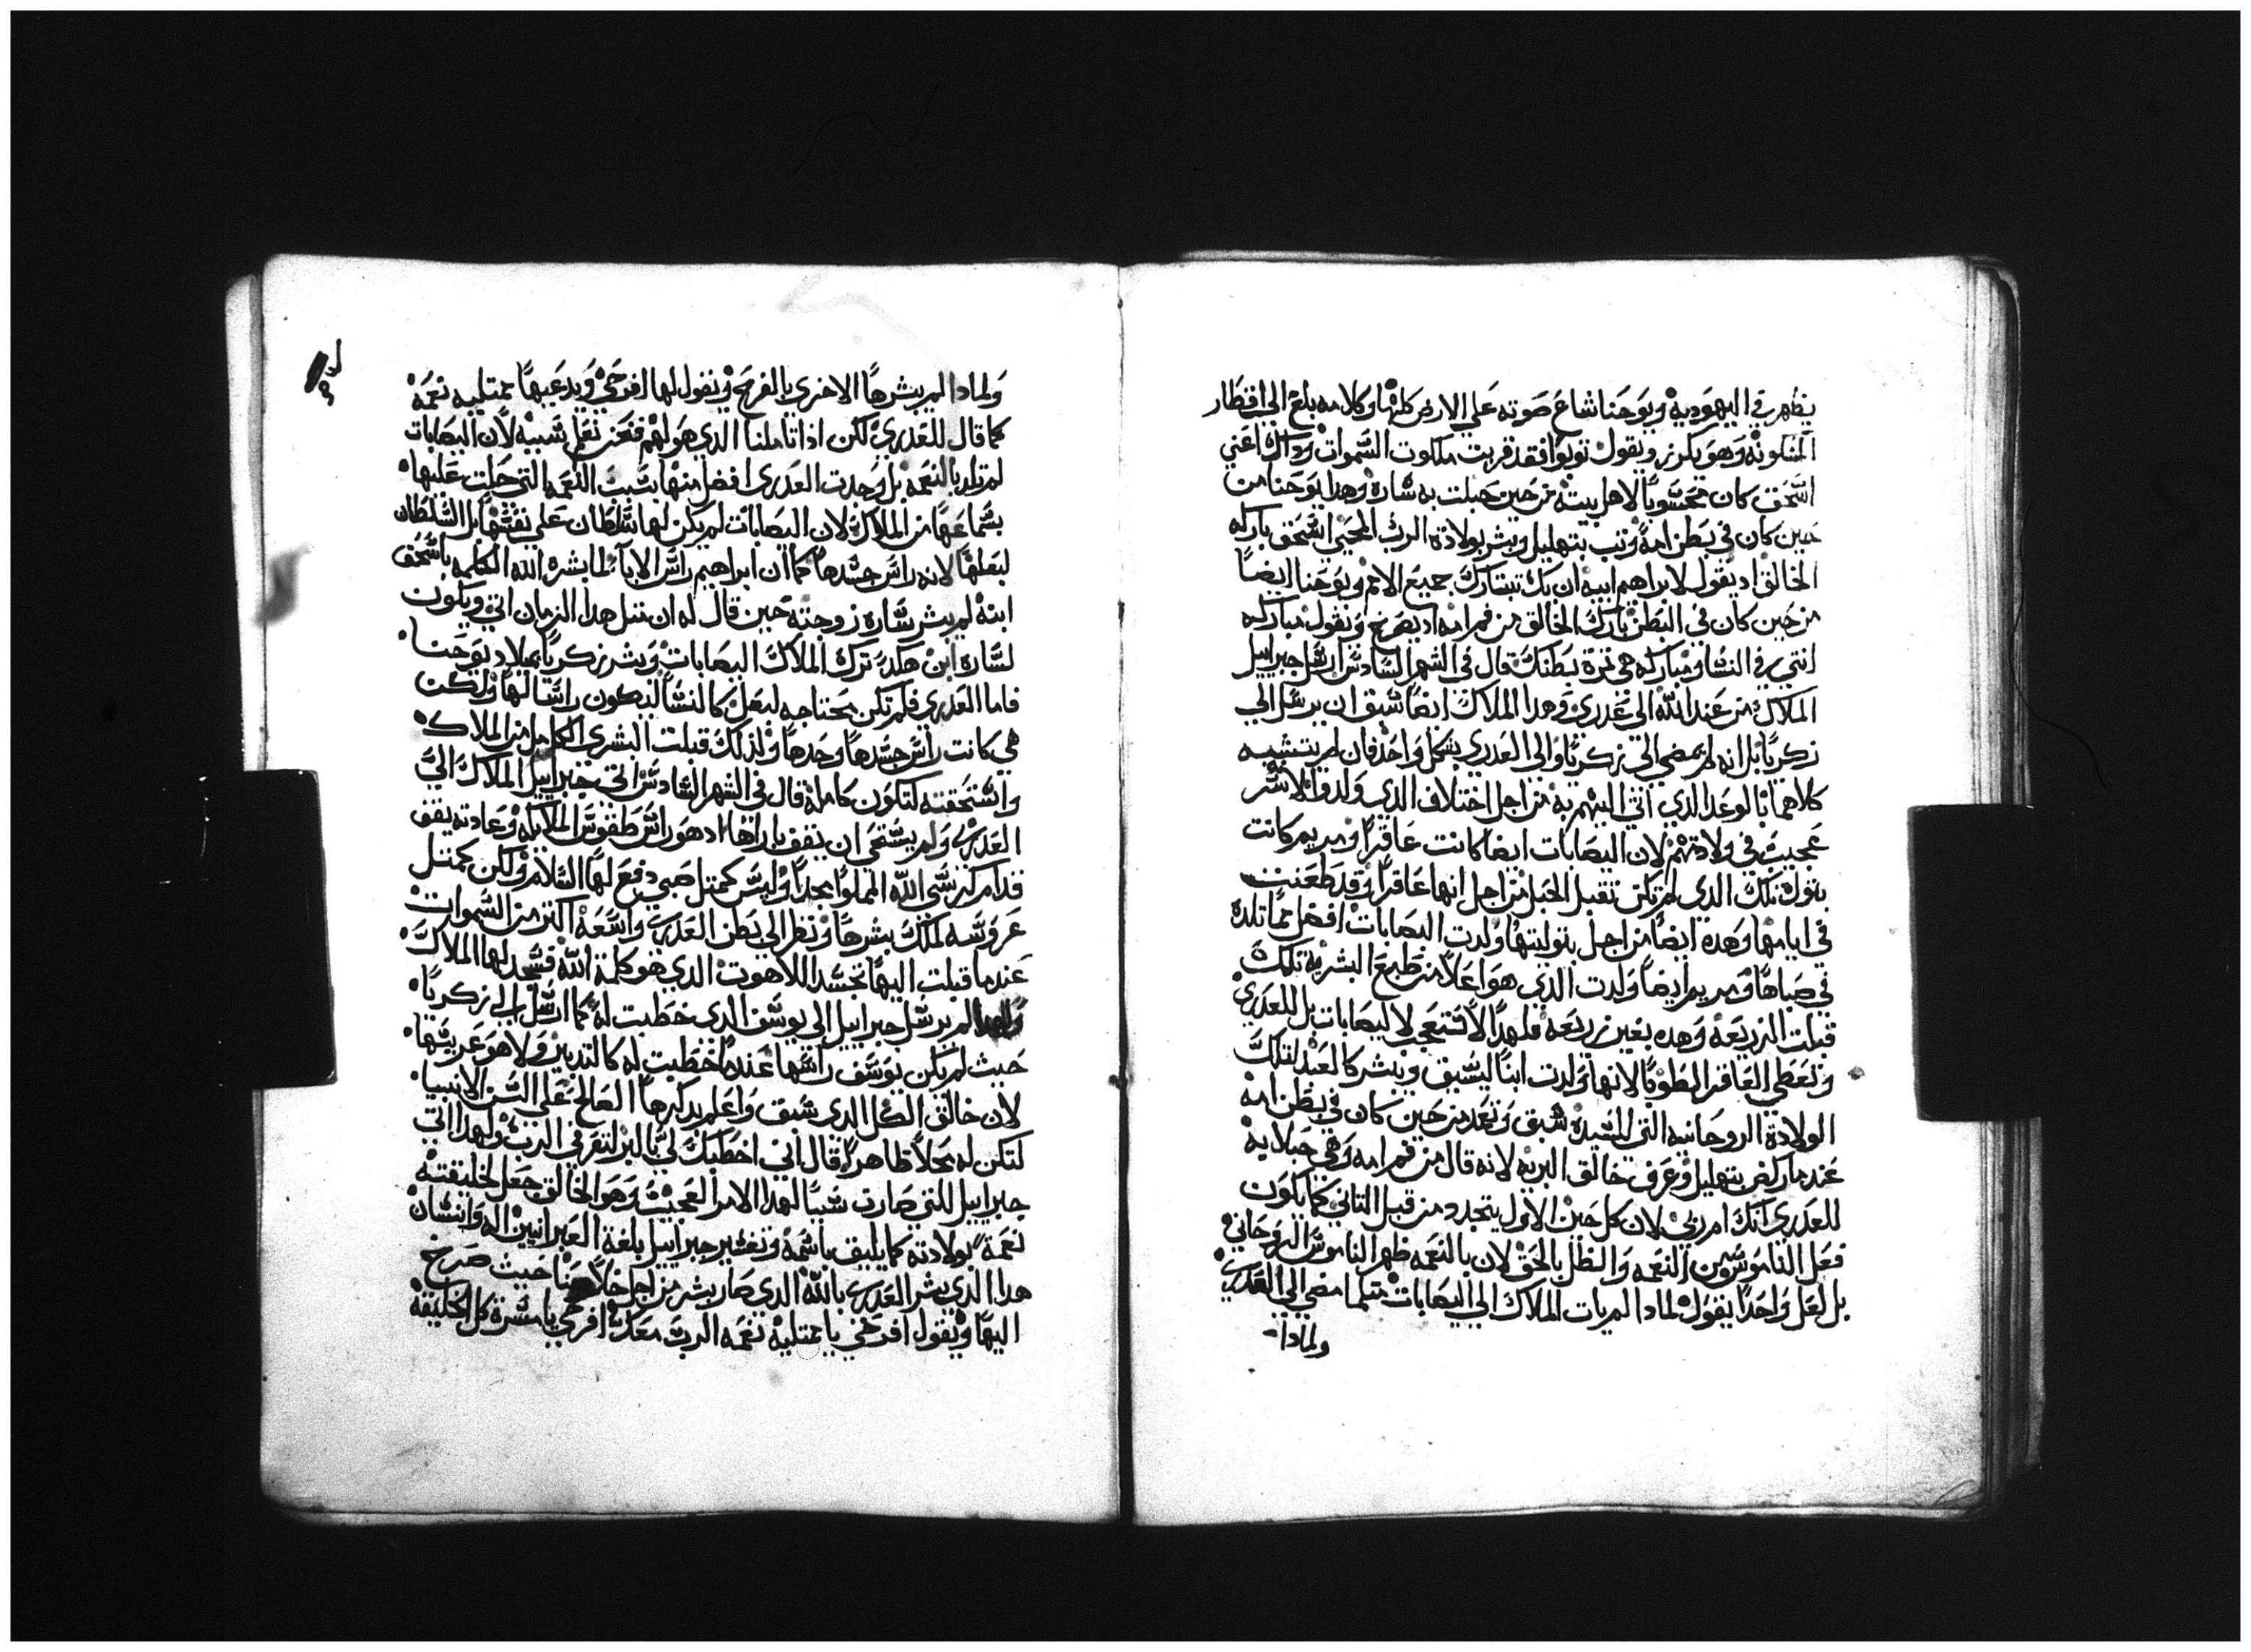 يظهر في اليهودية ويوحنا شاع صوته علي الارض كلها وكلامه بلغ الي اقطار
المسكونه وهو يكرز ويقول توبوا فقد قربت ملكوت السموات وداك اعني
اسحق كان محسوبا لاهل بيته من حين حبلت به ساره وهدا يوحنا من
حين كان في بطن امه وتب بتهليل وبشر بولادة الرب المحيي اسحق باركه
الخالق اد يقول لابراهيم ابيه ان بك تتبارك جميع الامم ويوحنا ايضا
من حين كان في البطن بارك الخالق من فم امه اد يصرخ ويقول مباركه
انتي في النسا ومباركه هي تمرة بطنك قال في الشهر السادس ارسل جبراييل
الملاك من عند الله الي عدري وهدا الملاك ايضا سبق ان يرسل الي
زكريا بل انه لم يمضي الي زكريا والي العدري بشكل واحد فان لم يتشبه
كلاهما بالوعد الدي اتي اليهم به من اجل اختلاف الدي ولدوا لاسر
عجيب في ولادتهم لان اليصابات ايضا كانت عاقرا ومريم كانت
بتول تلك الدي لم تكن تقبل الحبل من اجل انها عاقرا وقد طعنت
في ايامها وهده ايضا من اجل بتوليتها ولدت اليصابات افضل مما تلده
في صباها ومريم ايضا ولدت الدي هو اعلا من طبع البشرية تلك
قبلت الزريعه وهده بغير زريعه فلهدا لا تتعجب لاليصابات بل للعدري
وتعطي العاقر الطوبا لانها ولدت ابنا ليسبق ويبشر كالعبد لتلك
الولادة الروحانيه التي للسيده سبق وتعمد من حين كان في بطن امه
عندما ركض بتهليل وعرف خالق البريه لانه قال من فم امه وهي حبلا به
للعدري انك ام ربي لان كل حين الاول يتجدد من قبل التاني كما يكون
فعل الناموس من النعمه والظل بالحق لان بالنعمه ظهر الناموس الروحاني
بل لعل واحدا يقول لمادا لم يات الملاك الي اليصابات متلما مضي الي العدري
ولمادا
ولمادا لم يبشرها الاخري بالفرح ويقول لها افرحي ويدعيها ممتليه نعمه
كما قال للعدري لكن ادا تاملنا الدي هو لهم فنحن نعلم سببه لان اليصابات
لم تلد بالنعمه بل وجدت العدري افضل منها بسبب النعمه التي حلت عليها
بسماعها من الملاك لان اليصابات لم يكن لها سلطان علي نفسها بل السلطان
لبعلها لانه راس جسدها كما ان ابراهيم راس الابا لما بشره الله الكلمه باسحق
ابنه لم يبشر ساره زوجته حين قال له ان متل هدا الزمان اتي ويكون
لساره ابن هكدي ترك الملاك اليصابات وبشر زكريا بميلاد يوحنا
فاما العدري فلم تكن محتاجه لبعل كالنسا ليكون راسا لها ولكن
هي كانت راس جسدها وحدها ولدلك قبلت البشري الكامل من الملاك
واستحقته لتكون كامله قال في الشهر السادس اتي جبراييل الملاك الي
العدري ولم يستحي ان يقف بازاها اد هو راس طقوس الملايكه وعادته يقف
قدام كرسي الله المملوا مجدا وليس كمتل صبي دفع لها السلام ولكن كمتل
عروسه لملك بشرها ونظر الي بطن العدري واسعه اكتر من السموات
عندما قبلت اليها تجسد اللاهوت الدي هو كلمة الله فسجد لها الملاك
ولهدا لم يرسل جبراييل الي يوسف الدي خطبت له كما ارسل الي زكريا
حيث لم يكن يوسف راسها عندما خطبت له كالتدبير ولا هو عريسها
لان خالق الكل الدي سبق واعلم بدكرها الصالح علي السن الانبيا
لتكن له محلا طاهرا قال اني اخطبك لي بالبر لتعرفي الرب ولهدا اتي
جبراييل للتي صارت سببا لهدا الامر العجيب وهو الخالق جعل لخليقته
نعمة بولادته كما يليق باسمه وتفسير جبراييل بلغة العبرانيين اله وانسان
هدا الدي بشر العدري بالله الدي صار بشر من اجل خلاصنا حيث صرخ
اليها ويقول افرحي يا ممتليه نعمه الرب معك افرحي يا مسرة كل الخليقه